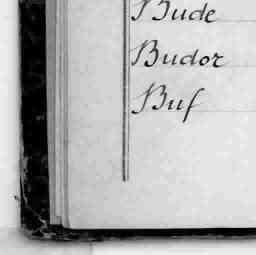 Bude
Budor
Buf